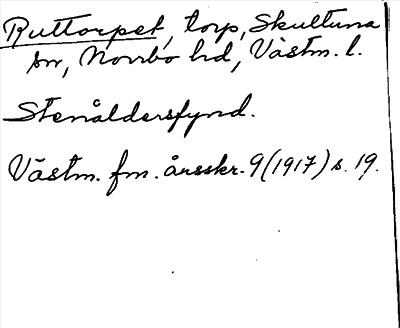 Ruttorpet, torp, Skultuna
sn, Norrbo hd, Västm. l.
Stenåldersfynd.
Västm. fm. årsskr. 9 (1917) s. 19.